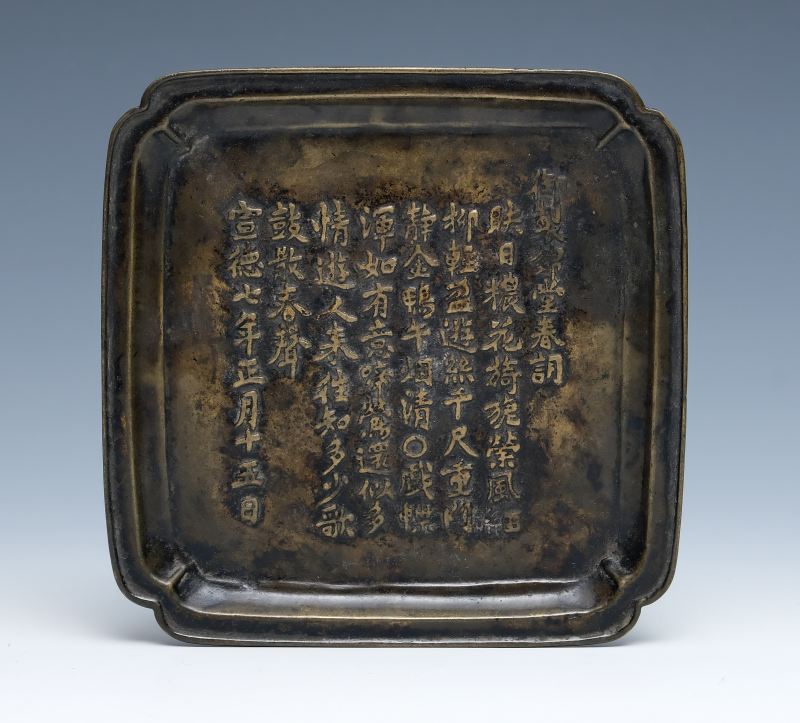 御製錦堂春詞
映日穠花旖旎縈風細
柳輕盈遊絲千尺重門
靜金鴨午烟清〇戲蝶
渾如有意啼鶯還似多
情遊人來往知多少歌
鼓散春聲
宣德七年正月十五日